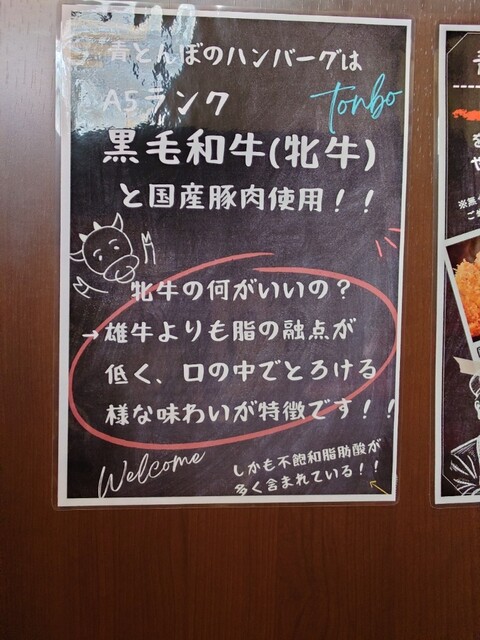 青とんぼのハンバーグは
A5ランク
Tonbo
黒毛和牛(牝牛)
と国産豚肉使用！！
牝牛の何がいいの？
→雄牛よりも脂の融点が
低く、口の中でとろける
様な味わいが特徴です！！
Welcome
しかも不飽和脂肪酸が
多く含まれている！！